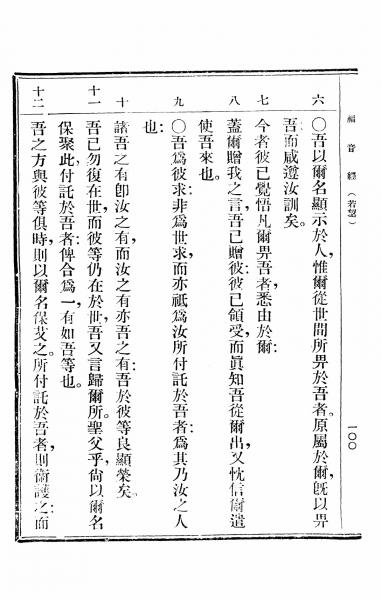 福音經 (若望) 一〇〇
六 〇吾以爾名顯示於人,惟爾從世間所畀於吾者。原屬於爾,旣以畀
吾而咸遵汝訓矣。
七 今者彼已覺悟凡爾畀吾者,悉由於爾:
八 蓋爾贈我之言,吾已贈彼:彼已領受,而眞知吾從爾出,又忱信爾遣
使吾來也。
九 〇吾爲彼求:非爲世求,而亦祇爲汝所付託於吾者:爲其乃汝之人
也:
十 諸吾之有卽汝之有,而汝之有亦吾之有:吾於彼等良顯榮矣。
十一 吾已勿復在世,而彼等仍在於世,吾又言歸爾所。聖父乎,尙以爾名
保聚此,付託於吾者:俾合爲一,有如吾等也。
十二 吾之方與彼等俱時,則以爾名保艾之。所付託於吾者,則衛護之:而